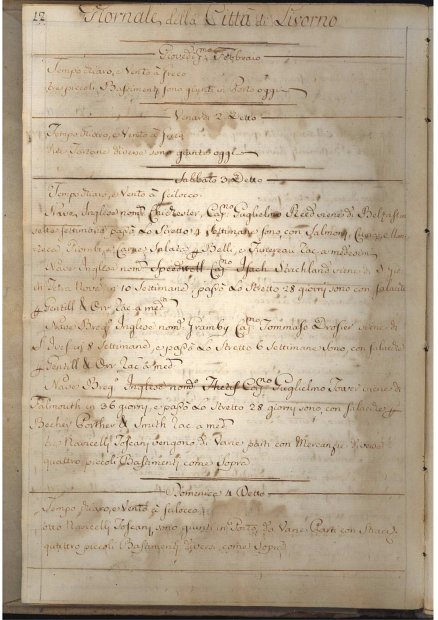 12 Giornale della Città di Livorno
Giovedi pmo Febbraio
Tempo Chiaro, e Vento à Greco
piccoli Bastimenti sono giunti in Porto oggi
Venerdi 2 Detto
Tempo Chiaro, e Vento à Greco
Tartane diverse sono giunte oggi
Sabbato 3 Detto
Tempo Chiaro, e Vento à Scilocco
Nave Inglese nomª Chichester Capno Guglielmo Reed viene di Belfast in
sette settimane passò lo Stretto 4 settimane sono, con Salmoni, Carne e
Piombi, e Carne Salata Bell, e
Nave Inglese nomª Speedwell Capno Isach Strachland viene di S.
di Terra Nova in 10 Settimane, passò lo Stretto 28 giorni sono con Salacche
Gentill & Orr Rac a med
Nave Bregº Inglese nomª Granby Capno Tommaso viene di
S. Ives in 8 Settimane, e passò lo Stretto 6 Settimane sono, con Salacche
Gentill & Orr Rac a med
Nave Bregº Inglese nomª Capno Guglielmo viene di
Falmouth in 36 giorni, e passò lo Stretto 28 giorni sono, con Salacche
& Smith Rac a med
Navicelli Toscani vengono di Varie parti con Mercanzie diverse
quattro piccoli Bastimenti come Sopra
Domenica 4 Detto
Tempo Chiaro, e Vento à Scilocco
otto Navicelli Toscani sono giunti in Porto da Varie Parti con
quattro piccoli Bastimenti diversi come Sopra